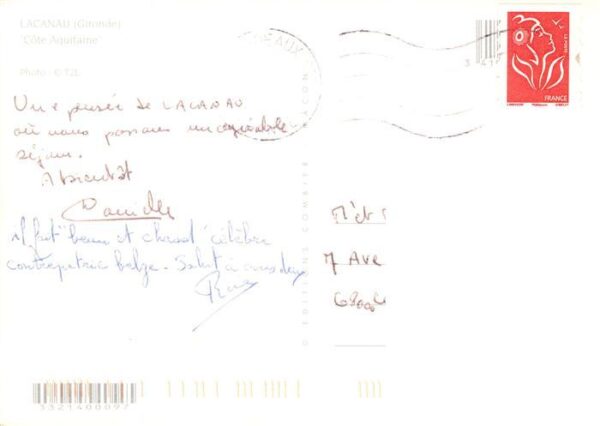 LACANAU (Gironde)
"Côte Aquitaine"
Photo : © T2L
Une pensée de LACANAU
où nous passons un agréable
séjour.
A bientôt
Danielle
il fait "beau et chaud" célèbre
contrepetrie belge. Salut à vous deux
FRANCE
LA POSTE
7 Ave
© EDITIONS COMBIER MACON
3321400097